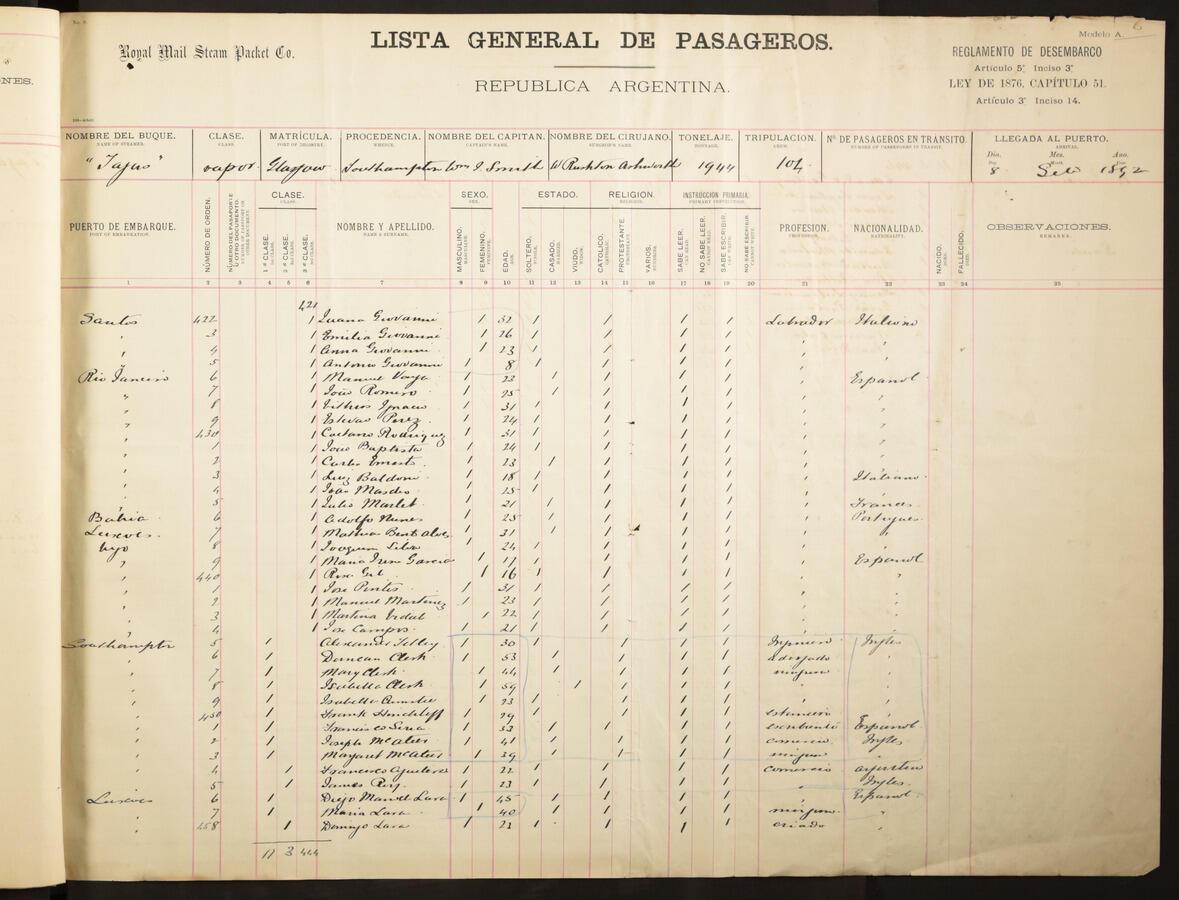 Royal Mail Steam Packet Co.
LISTA GENERAL DE PASAGEROS.
REPUBLICA ARGENTINA.
Modelo A.
REGLAMENTO DE DESEMBARCO
Artículo 5º Inciso 3º
LEY DE 1876, CAPÍTULO 51.
Artículo 3º Inciso 14.
NOMBRE DEL BUQUE. CLASE. MATRÍCULA. PROCEDENCIA. NOMBRE DEL CAPITAN. NOMBRE DEL CIRUJANO. TONELAJE. TRIPULACION. Nº DE PASAGEROS EN TRÁNSITO. LLEGADA AL PUERTO.
NAME OF STEAMER. CLASS. PORT OF REGISTRY. WHENCE. CAPTAIN'S NAME. SURGEON'S NAME. TONNAGE. CREW. NUMBER OF PASSENGERS IN TRANSIT. ARRIVAL.
Dia. Mes. Ano.
"Tagus" vapor Glasgow Southampton Wm J. Smith W Rushton Ashworth 1944 104 8 Set. 1892
CLASE. SEXO. ESTADO. RELIGION. INSTRUCCION PRIMARIA.
PUERTO DE EMBARQUE. NÚMERO DE ORDEN. NÚMERO DEL PASAPORTE U OTRO DOCUMENTO. 1ª CLASE. 2ª CLASE. 3ª CLASE. NOMBRE Y APELLIDO. MASCULINO. FEMENINO. EDAD. SOLTERO. CASADO. VIUDO. CATOLICO. PROTESTANTE. VARIOS. SABE LEER. NO SABE LEER. SABE ESCRIBIR. NO SABE ESCRIBIR. PROFESION. NACIONALIDAD. NACIDO. FALLECIDO. OBSERVACIONES.
PORT OF EMBARKATION. NAME & SURNAME. PROFESSION. NATIONALITY. REMARKS.
1 2 3 4 5 6 7 8 9 10 11 12 13 14 15 16 17 18 19 20 21 22 23 24 25
421
Santos 422 1 Juana Giovanni 1 52 1 1 1 1 Labrador Italiano
" 3 1 Emilia Giovanni 1 26 1 1 1 1 " "
" 4 1 Anna Giovanni 1 23 1 1 1 1 " "
" 5 1 Antonio Giovanni 1 8 1 1 1 1 " "
Rio Janeiro 6 1 Manuel 1 23 1 1 1 1 " Español
" 7 1 João Romero 1 25 1 1 1 1 " "
" 8 1 Ignacio 1 31 1 1 1 1 " "
" 9 1 Estevao Perez 1 24 1 1 1 1 " "
" 430 1 Caetano Rodriguez 1 31 1 1 1 1 " "
" 1 1 João Baptista 1 24 1 1 1 1 " "
" 2 1 Carlos Ernesto 1 23 1 1 1 1 " "
" 3 1 Luiz Baldoni 1 18 1 1 1 1 " Italiano
" 4 1 João 1 25 1 1 1 1 " "
" 5 1 Julio Marlet 1 21 1 1 1 1 " Frances
Bahia 6 1 Adolfo Nunes 1 25 1 1 1 1 " Portugues
Lisbon 7 1 Bento Alves 1 31 1 1 1 1 " "
Vigo 8 1 Joaquim Silva 1 24 1 1 1 1 " "
" 9 1 Maria Garcia 1 17 1 1 1 1 " Español
" 440 1 Rosa Gil 1 16 1 1 1 1 " "
" 1 1 Jose 1 31 1 1 1 1 " "
" 2 1 Manuel Martinez 1 23 1 1 1 1 " "
" 3 1 Martina Vidal 1 22 1 1 1 1 " "
" 4 1 Jose Campos 1 21 1 1 1 1 " "
Southampton 5 1 Alexander 1 30 1 1 1 1 Ingeniero Ingles
" 6 1 Duncan Clerk 1 53 1 1 1 1 "
" 7 1 Mary Clerk 1 44 1 1 1 1 ninguna "
" 8 1 Isabella Clerk 1 59 1 1 1 1 " "
" 9 1 Isabella 1 23 1 1 1 1 " "
" 450 1 Frank Hinchliff 1 29 1 1 1 1 estanciero "
" 1 1 Francisco 1 33 1 1 1 1 escribiente Español
" 2 1 Joseph McAteer 1 41 1 1 1 1 comercio Ingles
" 3 1 Margaret McAteer 1 39 1 1 1 1 ninguna "
" 4 1 Francisco Aguilera 1 22 1 1 1 1 comercio argentino
" 5 1 James 1 23 1 1 1 1 " Ingles
Lisbon 6 1 Diego Manuel Lara 1 45 1 1 1 1 " Español
" 7 1 Maria Lara 1 40 1 1 1 1 ninguna "
" 458 1 Domingo Lara 1 21 1 1 1 1 criado "
11 3 444